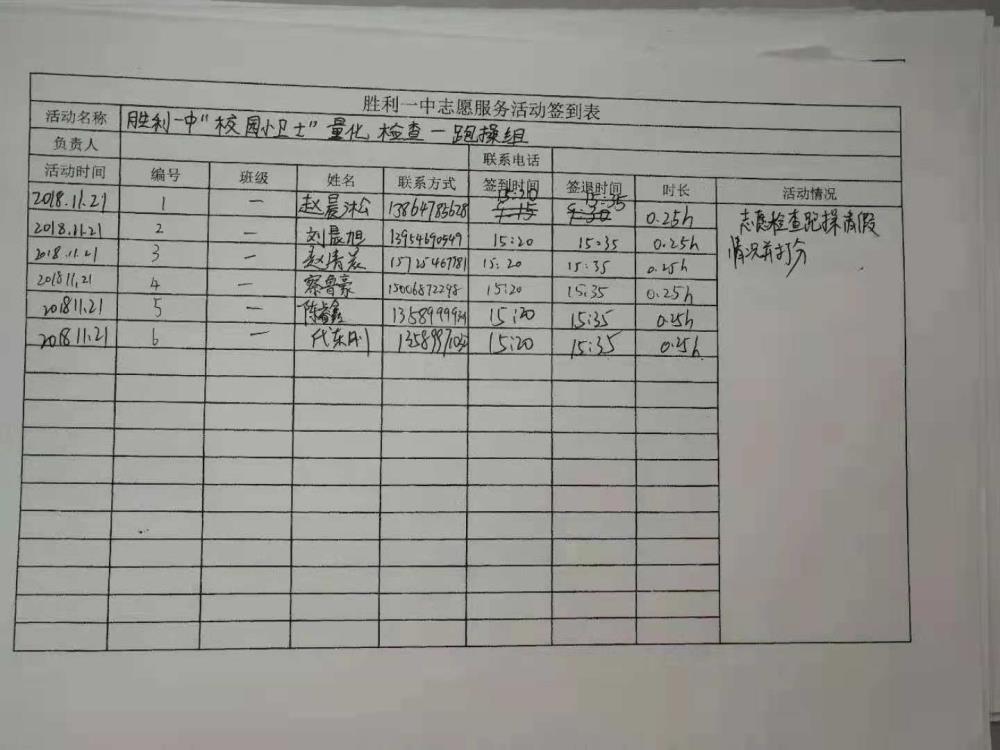 胜利一中志愿服务活动签到表
活动名称 胜利一中"校园小卫士"量化检查一跑操组
负责人 联系电话
活动时间 编号 班级 姓名 联系方式 签到时间 签退时间 时长 活动情况
2018.11.21 1 一 赵晨淞 13864783628 15:20 15:35 0.25h 志愿检查跑操请假
2018.11.21 2 一 刘晨旭 13954690549 15:20 15:35 0.25h 情况并打分
2018.11.21 3 一 赵清 15725467781 15:20 15:35 0.25h
201811.21 4 一 蔡鲁豪 15006872298 15:20 15:35 0.25h
201811.21 5 一 陈鑫 15:20 15:35 0.25h
201811.21 6 一 代东刚 15:20 15:35 0.25h